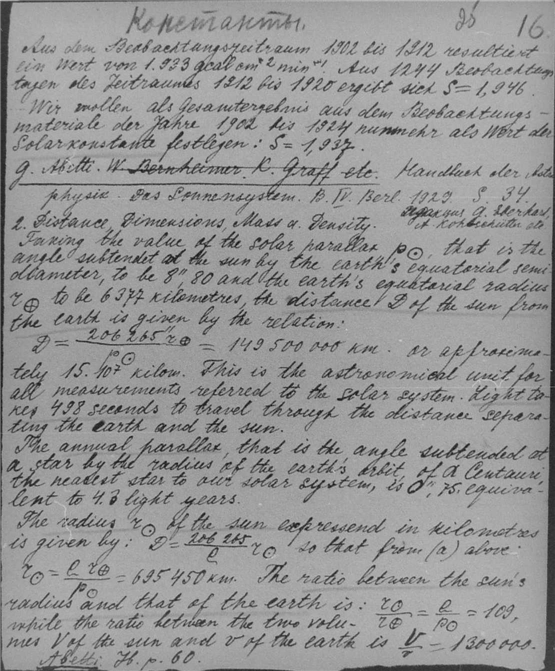 Константы. 16.
Aus dem Beobachtungszeitraum 1902 bis 1912 resultiert
ein Wert von 1.933 gcal cm⁻² min⁻¹. Aus 1244 Beobachtungs
tagen des Zeitraumes 1912 bis 1920 ergibt sich S = 1,946.
Wir wollen als Gesamtergebnis aus dem Beobachtungs-
materiale der Jahre 1902 bis 1924 nunmehr als Wert der
Solarkonstante festlegen: S = 1,937.
G. Abetti. W. Bernheimer. K. Graff etc. Handbuch der Astro
physik. Das Sonnensystem. B. IV. Berl. 1929. S. 34.
G. Eberhard
A. Kohlschütter etc
2. Distance, Dimensions, Mass a. Density.
Taking the value of the solar parallax p☉, that is the
angle subtended at the sun by the earth's equatorial semi
diameter, to be 8"80 and the earth's equatorial radius
r⊕ to be 6377 kilometres, the distance D of the sun from
the earth is given by the relation:
D = 206 265" r⊕ / p☉ = 149 500 000 km. or approxima-
tely 15.10⁷ kilom. This is the astronomical unit for
all measurements referred to the solar system. Light ta-
kes 498 seconds to travel through the distance separa-
ting the earth and the sun.
The annual parallax, that is the angle subtended at
a star by the radius of the earth's orbit, of α Centauri,
the nearest star to our solar system, is 0",75. equiva-
lent to 4.3 light years.
The radius r☉ of the sun expressend in kilometres
is given by: D = 206 265 / ρ r☉ so that from (a) above:
r☉ = ρ r⊕ / p☉ = 695 450 km. The ratio between the sun's
radius and that of the earth is: r☉ / r⊕ = ρ / p☉ = 109,
while the ratio between the two volu-
mes V of the sun and v of the earth is V / v = 1300000.
Abetti. Ib. p. 60.